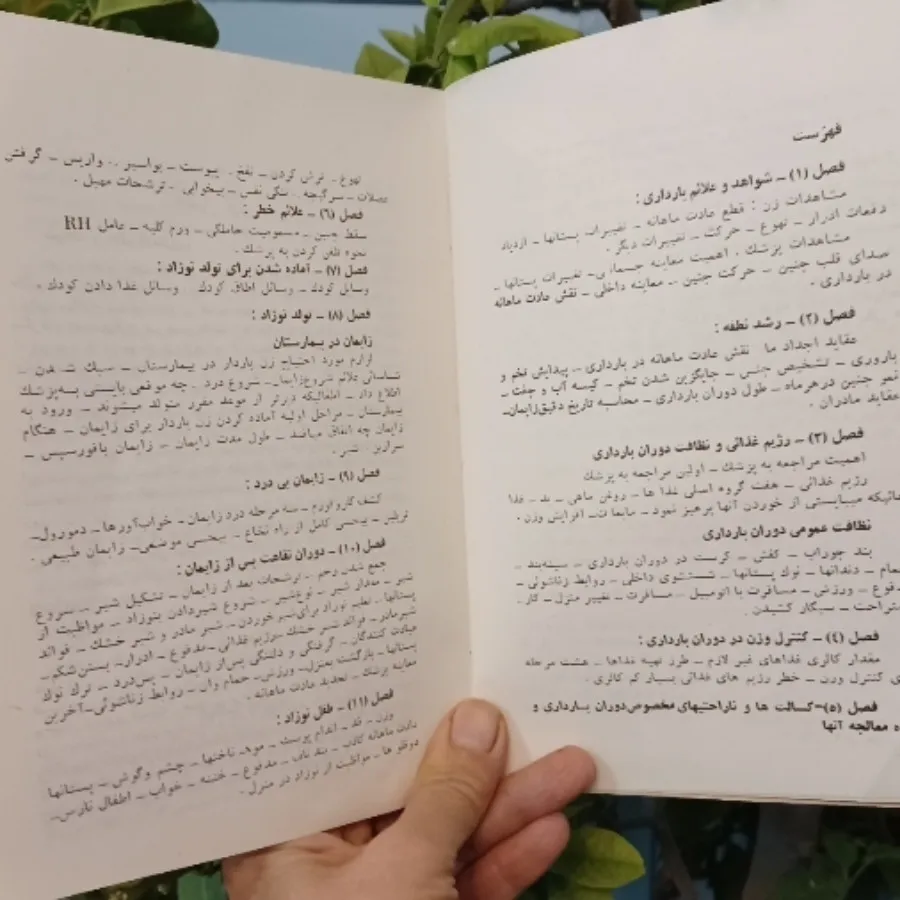 فهرست
فصل (۱) – شواهد و علائم بارداری :
مشاهدات زن : قطع عادت ماهانه – تغییرات پستانها – ازدیاد
دفعات ادرار – تهوع – حرکت – تغییرات دیگر .
مشاهدات پزشک . اهمیت معاینه جسمانی – تغییرات پستانها –
صدای قلب جنین – حرکت جنین – معاینه داخلی – نقش عادت ماهانه
در بارداری .
فصل (۲) – رشد نطفه :
عقاید اجداد ما نقش عادت ماهانه در بارداری – پیدایش تخم و
باروری – تشخیص جنس – جایگزین شدن تخم – کیسه آب و جفت –
نمو جنین در هرماه – طول دوران بارداری – محاسبه تاریخ دقیق زایمان–
عقاید مادران .
فصل (۳) – رژیم غذائی و نظافت دوران بارداری
اهمیت مراجعه به پزشک – اولین مراجعه به پزشک
رژیم غذائی – هفت گروه اصلی غذا ها – روغن ماهی – ید – غذا
هائیکه میبایستی از خوردن آنها پرهیز نمود – مایعات – افزایش وزن .
نظافت عمومی دوران بارداری
بند جوراب – کفش – کرست در دوران بارداری – سینه‌بند –
حمام – دندانها – نوک پستانها – شستشوی داخلی – روابط زناشوئی –
مدفوع – ورزش – مسافرت با اتومبیل – مسافرت – تغییر منزل – کار –
استراحت – سیگار کشیدن .
فصل (۴) – کنترل وزن در دوران بارداری :
مقدار کالری غذاهای غیر لازم – طرز تهیه غذاها – هشت مرحله
ی کنترل وزن – خطر رژیم های غذائی بسیار کم کالری .
فصل (۵) –کسالت ها و ناراحتیهای مخصوص دوران بارداری و
معالجه آنها
تهوع – ترش کردن – نفخ . یبوست – بواسیر – واریس – گرفتن
عضلات – سرگیجه – تنگی نفس – بیخوابی – ترشحات مهبل .
فصل (۶) – علائم خطر :
سقط جنین – مسمومیت حاملگی – ورم کلیه – عامل RH
نحوه تلفن کردن به پزشک .
فصل (۷) – آماده شدن برای تولد نوزاد :
وسائل کودک – وسائل اطاق کودک وسائل غذا دادن کودک .
فصل (۸) – تولد نوزاد :
زایمان در بیمارستان
لوازم مورد احتیاج زن باردار در بیمارستان – سبک شدن –
شناسائی علائم شروع زایمان – شروع درد – چه موقعی بایستی به پزشک
اطلاع داد – اطفالیکه دیرتر از موعد مقرر متولد میشوند – ورود به
بیمارستان – مراحل اولیه آماده کردن زن باردار برای زایمان – هنگام
زایمان چه اتفاق میافتد – طول مدت زایمان – زایمان با فورسپس –
سزارین
فصل (۹) – زایمان بی درد :
کشف کلروفورم – سه مرحله درد زایمان – خواب‌آورها – دمورول–
تریلین – بیحسی کامل از راه نخاع – بیحسی موضعی – زایمان طبیعی .
فصل (۱۰) – دوران نقاهت پس از زایمان :
جمع شدن رحم – ترشحات بعد از زایمان – تشکیل شیر – شروع
شیر – مقدار شیر – نوع شیر – شروع شیردادن بنوزاد – مواظبت از
پستانها – تعلیم نوزاد برای شیر خوردن – شیر مادر و شیر خشک – فوائد
شیر مادر – فوائد شیر خشک – رژیم غذائی – مدفوع – ادرار – بستن شکم –
عیادت کنندگان – گرفتگی و دلتنگی پس از زایمان – پس درد – ترک نوک
پستانها – بازگشت بمنزل – ورزش – حمام وان – روابط زناشوئی – آخرین
معاینه پزشک – تجدید عادت ماهانه .
فصل (۱۱) – طفل نوزاد :
وزن – قد – اندام پوست – مو – ناخنها – چشم و گوش – پستانها
عادت ماهانه کاذب – بند ناف – مدفوع – ختنه – خواب – اطفال نارس –
دوقلو ها – مواظبت از نوزاد در منزل .